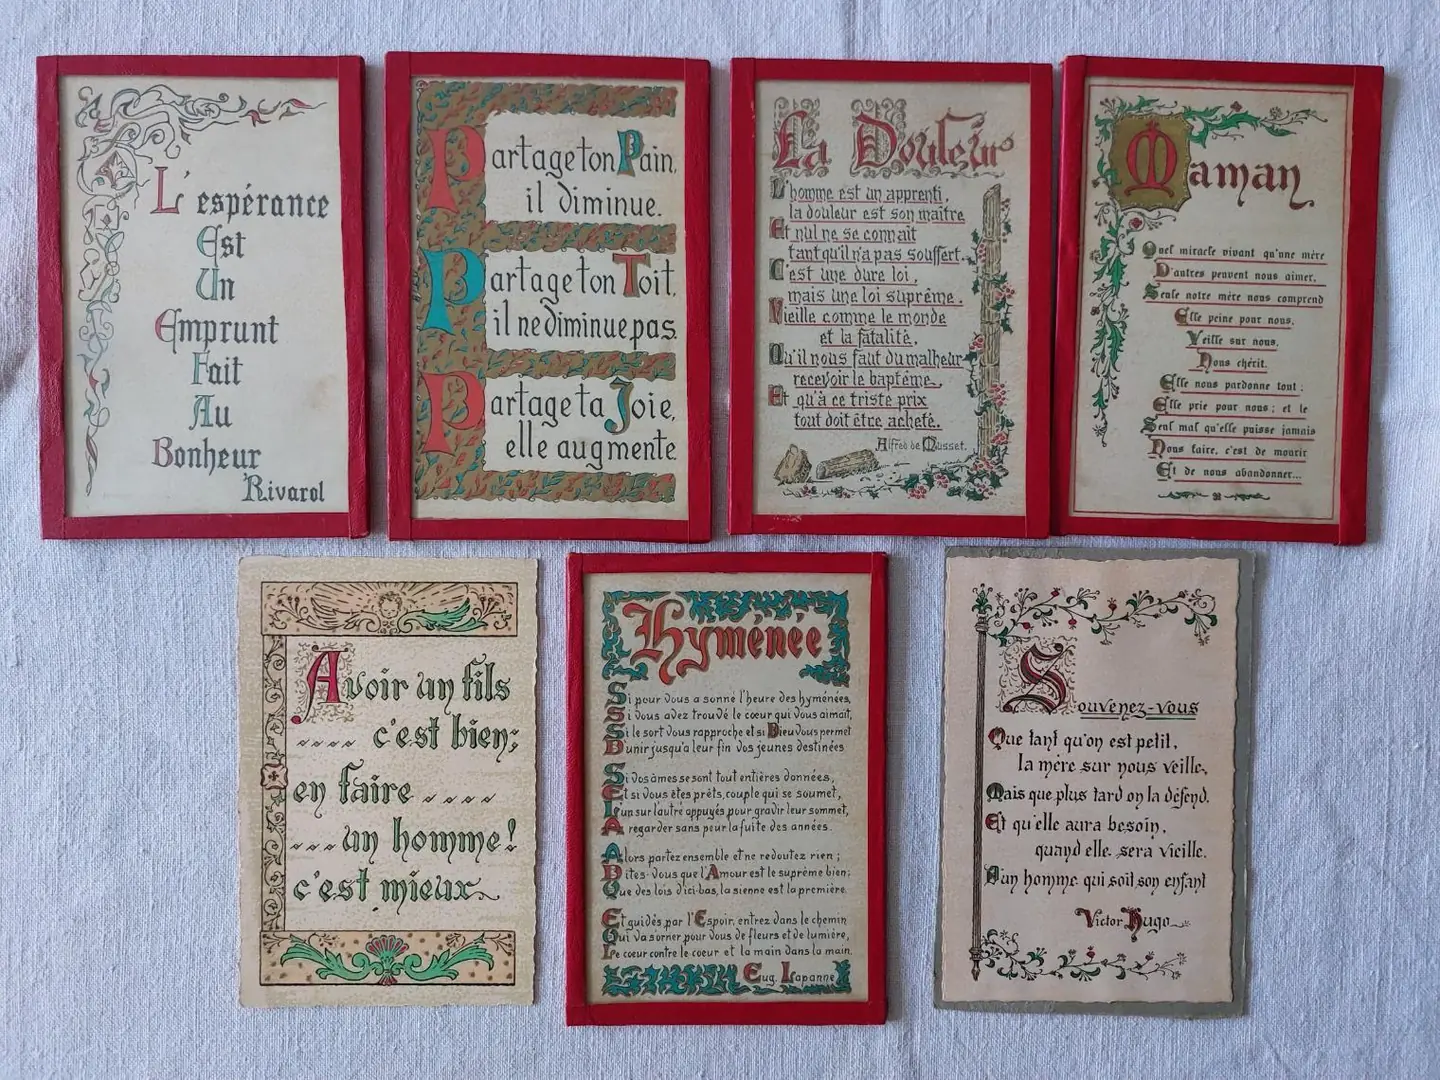 L'espérance
Est
Un
Emprunt
Fait
Au
Bonheur
Rivarol
Partage ton Pain,
il diminue.
Partage ton Toit,
il ne diminue pas.
Partage ta Joie,
elle augmente
La Douleur
L'homme est un apprenti,
la douleur est son maître
Et nul ne se connait
tant qu'il n'a pas souffert.
C'est une dure loi,
mais une loi suprême,
Vieille comme le monde
et la fatalité,
Qu'il nous faut du malheur
recevoir le baptême,
Et qu'à ce triste prix
tout doit être acheté.
Alfred de Musset.
Maman
Quel miracle vivant qu'une mère
D'autres peuvent nous aimer,
Seule notre mère nous comprend
Elle peine pour nous,
Veille sur nous,
Nous chérit.
Elle nous pardonne tout ;
Elle prie pour nous ; et le
Seul mal qu'elle puisse jamais
Nous faire, c'est de mourir
Et de nous abandonner...
Avoir un fils
.... c'est bien;
en faire ....
... un homme!
c'est mieux
Hyménée
Si pour vous a sonné l'heure des hyménées,
Si vous avez trouvé le cœur qui vous aimait,
Si le sort vous rapproche et si Dieu vous permet
D'unir jusqu'a leur fin vos jeunes destinées
Si vos âmes se sont tout entières données,
Et si vous êtes prêts, couple qui se soumet,
L'un sur l'autre appuyés pour gravir leur sommet,
A regarder sans peur la fuite des années.
Alors partez ensemble et ne redoutez rien ;
Dites-vous que l'Amour est le suprême bien;
Que des lois d'ici-bas, la sienne est la première.
Et guidés par l'Espoir, entrez dans le chemin
Qui va s'orner pour vous de fleurs et de lumière,
Le cœur contre le cœur et la main dans la main.
Eug. Lapanne
Souvenez-vous
Que tant qu'on est petit,
la mère sur nous veille,
Mais que plus tard on la défend.
Et qu'elle aura besoin,
quand elle sera vieille.
D'un homme qui soit son enfant
Victor Hugo